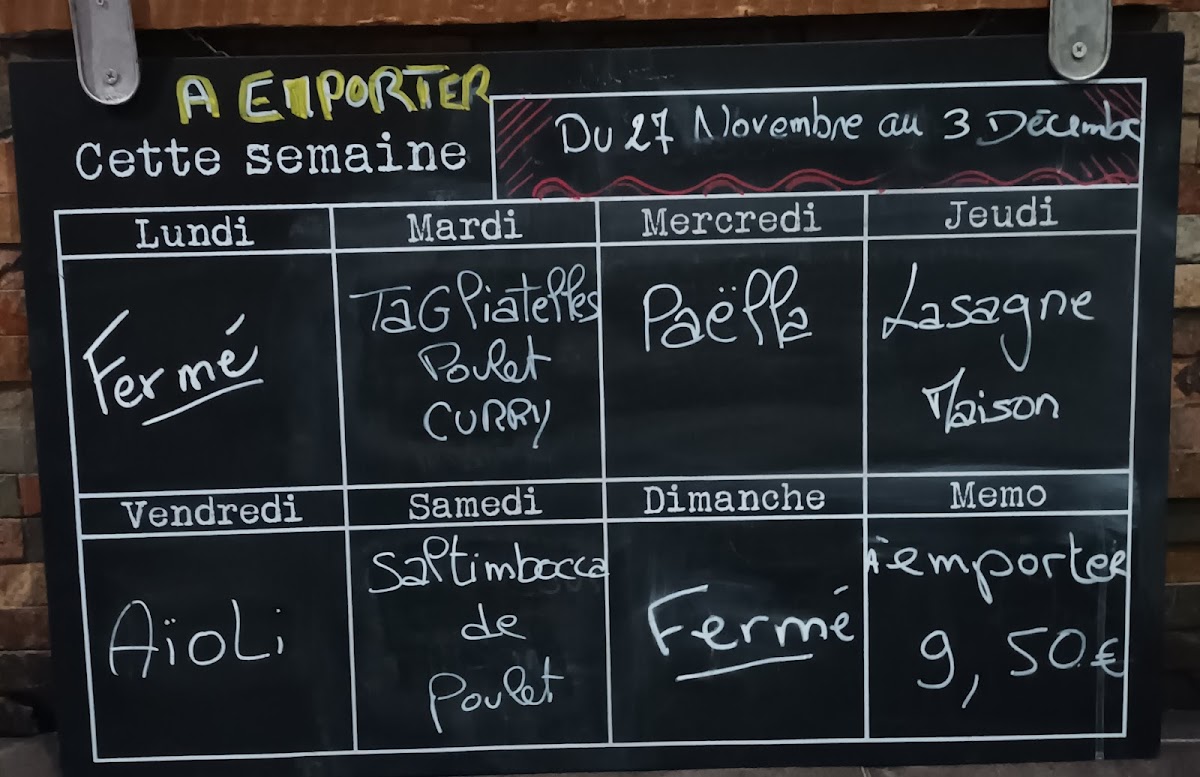 A EMPORTER
Cette semaine
Du 27 Novembre au 3 Décembre
Lundi
Fermé
Mardi
TaGliatelles
Poulet
CURRY
Mercredi
Paëlla
Jeudi
Lasagne
Maison
Vendredi
Aïoli
Samedi
Saltimbocca
de
Poulet
Dimanche
Fermé
Memo
A emporter
9,50€